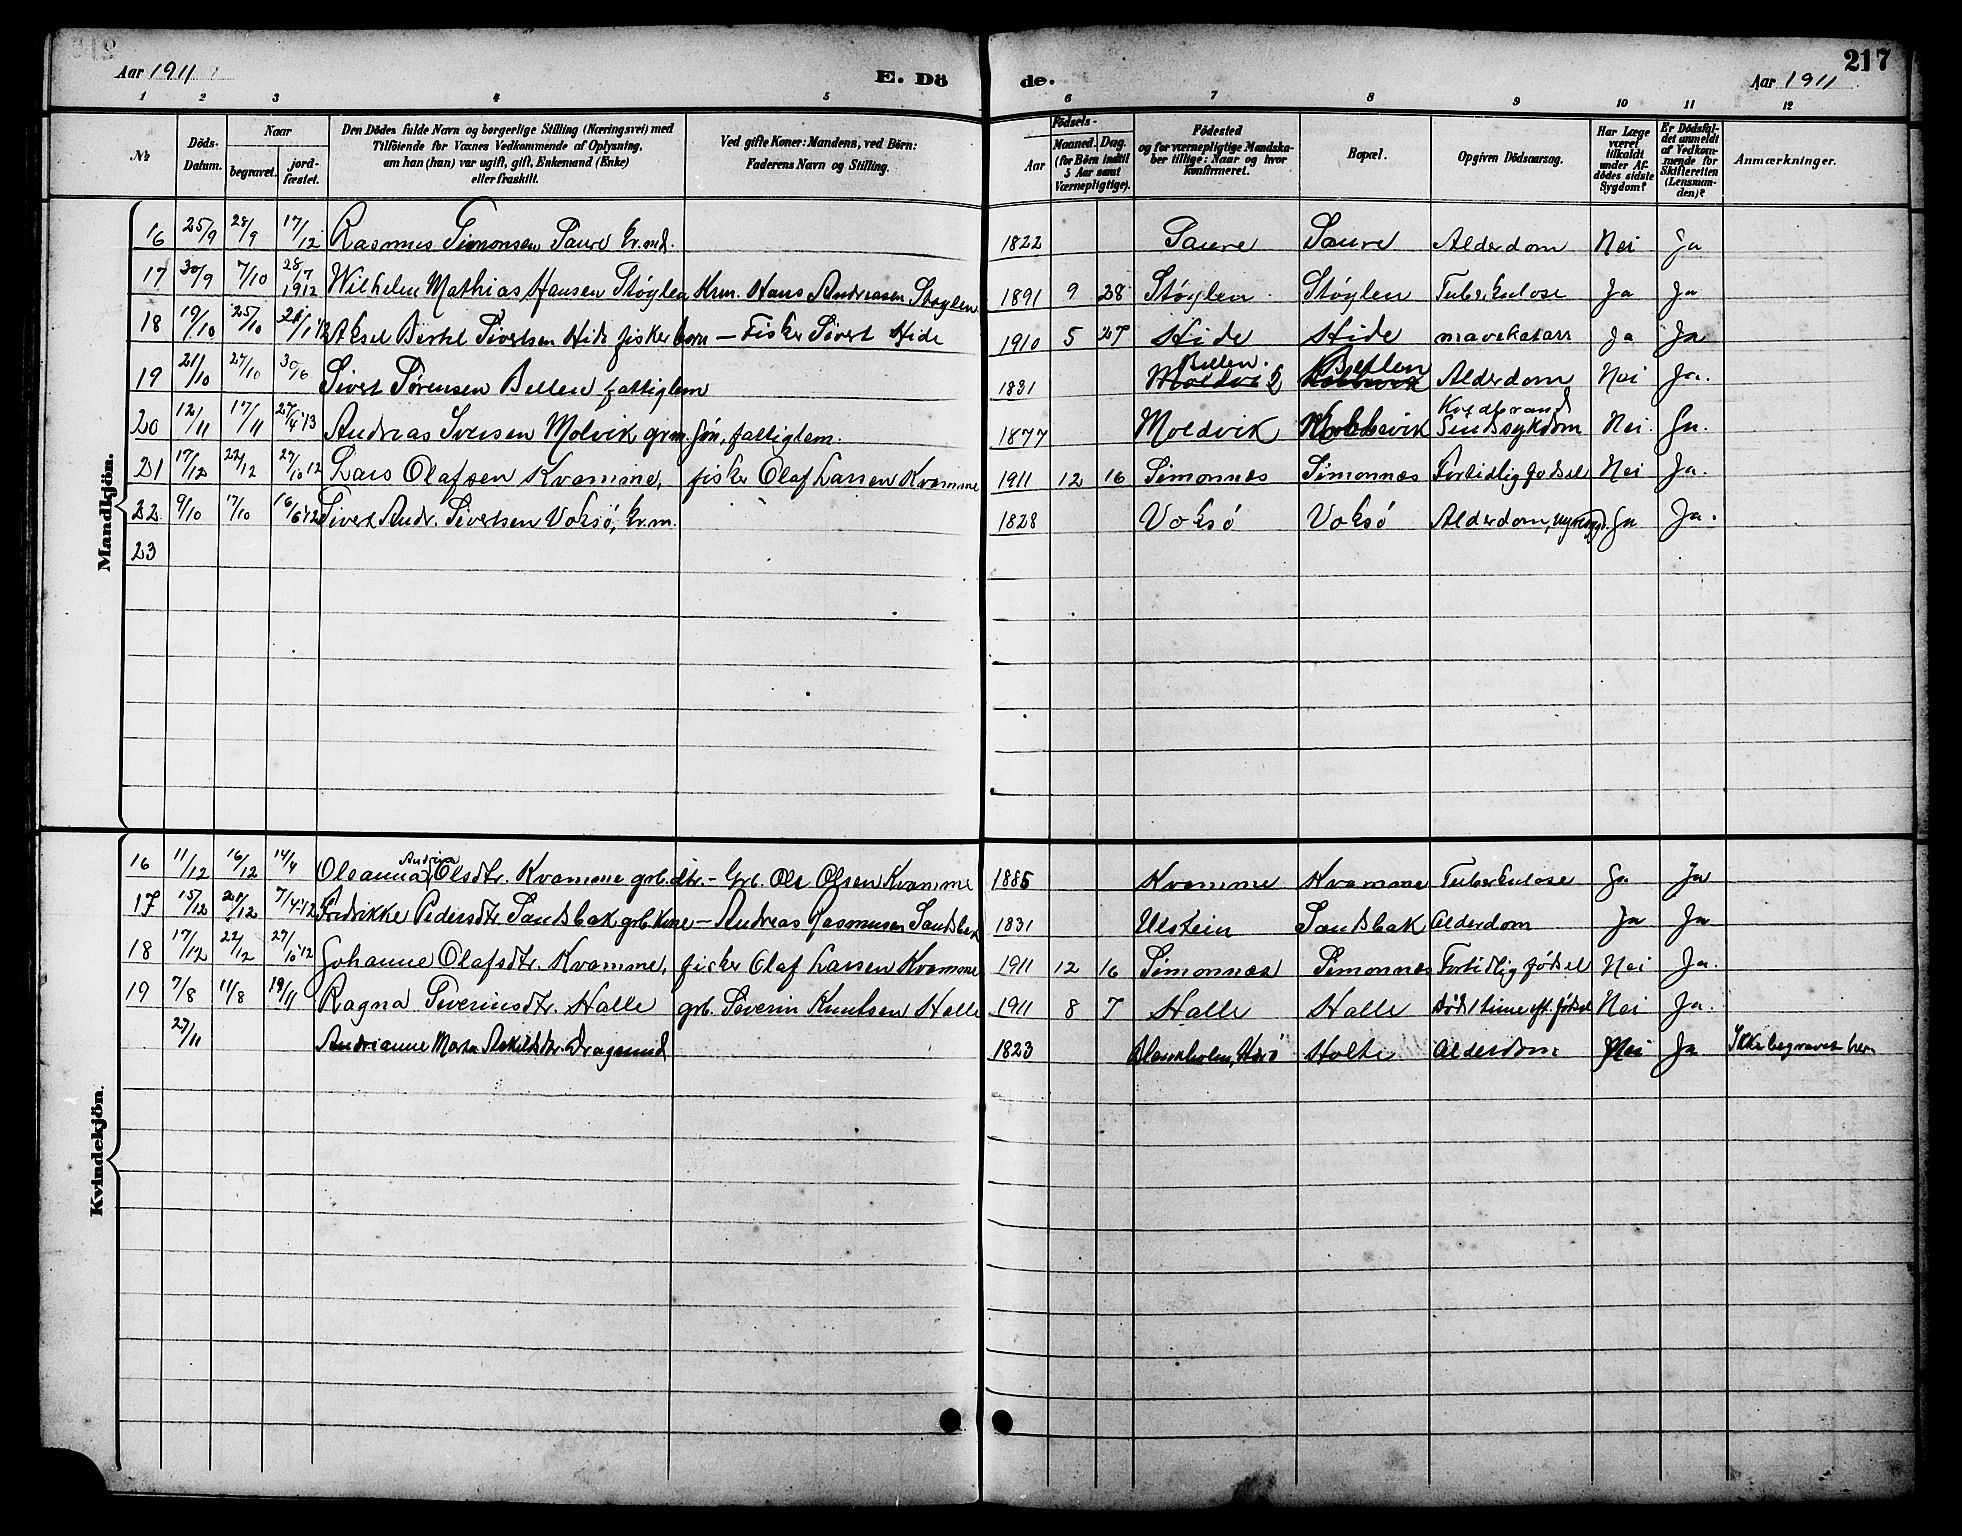 217
Aar 1911
E. Dö
de.
Aar 1911
1 2 3 4 5 6 7 8 9 10 11 12
№
Döds-Datum.
Naar
begravet.
jordfæstet.
Den Dödes fulde Navn og borgerlige Stilling (Næringsvei) med
Tilföiende for Voxnes Vedkommende af Oplysning,
om han (hun) var ugift, gift, Enkemand (Enke)
eller fraskilt.
Ved gifte Koner: Mandens, ved Börn:
Faderens Navn og Stilling.
Födsels-
Aar
Maaned. Dag.
(for Börn indtil
5 Aar samt
Værnepligtige).
Födested
og for værnepligtige Mandska-
ber tillige: Naar og hvor
konfirmeret.
Bopæl.
Opgiven Dödsaarsag.
Har Læge
været
tilkaldt
under Af-
dödes sidste
Sygdom?
Er Dödsfal-
det anmeldt
af Vedkom-
mende for
Skifteretten
(Lensman-
den)?
Anmærkninger.
Mandkjön.
16 25/9 28/9 17/12 Rasmus Simonsen Saure Gr.md. 1822 Saure Saure Alderdom Nei Ja
17 30/9 7/10 28/7 1912 Wilhelm Mathias Hansen Støylen Krm. Hans Andreasen Støylen 1891 9 28 Støylen Støylen Tuberkulose Ja Ja
18 19/10 25/10 Aksel Bertel Sivertsen Hide fisker barn — Fisker Sivert Hide 1910 5 27 Hide Hide mavekatarr Ja Ja
19 21/10 27/10 30/6 Sivert Sørensen Bellen fattiglem 1831 Bellen. Alderdom Nei Ja.
20 12/11 17/11 27/4 13 Andreas Iversen Molvik grm. søn, fattiglem. 1877 Moldvik Koldbrand Sindssykdom Nei Ja.
21 17/12 22/12 27/10 12 Lars Olafsen Kvamme, fisker Olaf Larsen Kvamme 1911 12 16 Simonnes Simonnes Fortidlig fødsel Nei Ja.
22 9/10 17/10 16/6 12 Sivert Andr. Sivertsen Voksø, Gr.m. 1828 Voksø Voksø Alderdom, Ja Ja.
23
Kvindekjön.
16 11/12 16/12 14/4 Oleanna Andrina Olsdtr. Kvamme grb.dtr. - Grb. Ole Olsen Kvamme 1885 Kvamme Kvamme Tuberkulose Ja Ja
17 15/12 21/12 7/4 12 Fredrikke Pedersdtr Sandsbak grb. kone — Andreas Rasmusen Sandsbak 1831 Ulstein Sandsbak Alderdom Ja Ja
18 17/12 22/12 27/10 12 Johanne Olafsdtr. Kvamme, fisker Olaf Larsen Kvamme 1911 12 16 Simonnes Simonnes Fortidlig fødsel Nei Ja.
19 7/8 11/8 19/11 Ragna Severinsdtr. Halle grb. Severin Knutsen Halle 1911 8 7 Halle Halle Død 1 time eft. fødsel Nei Ja.
27/11 Andrianne Marta Askildsdtr. Dragsund 1823 Holte Alderdom Nei Ja Ikke begravet her